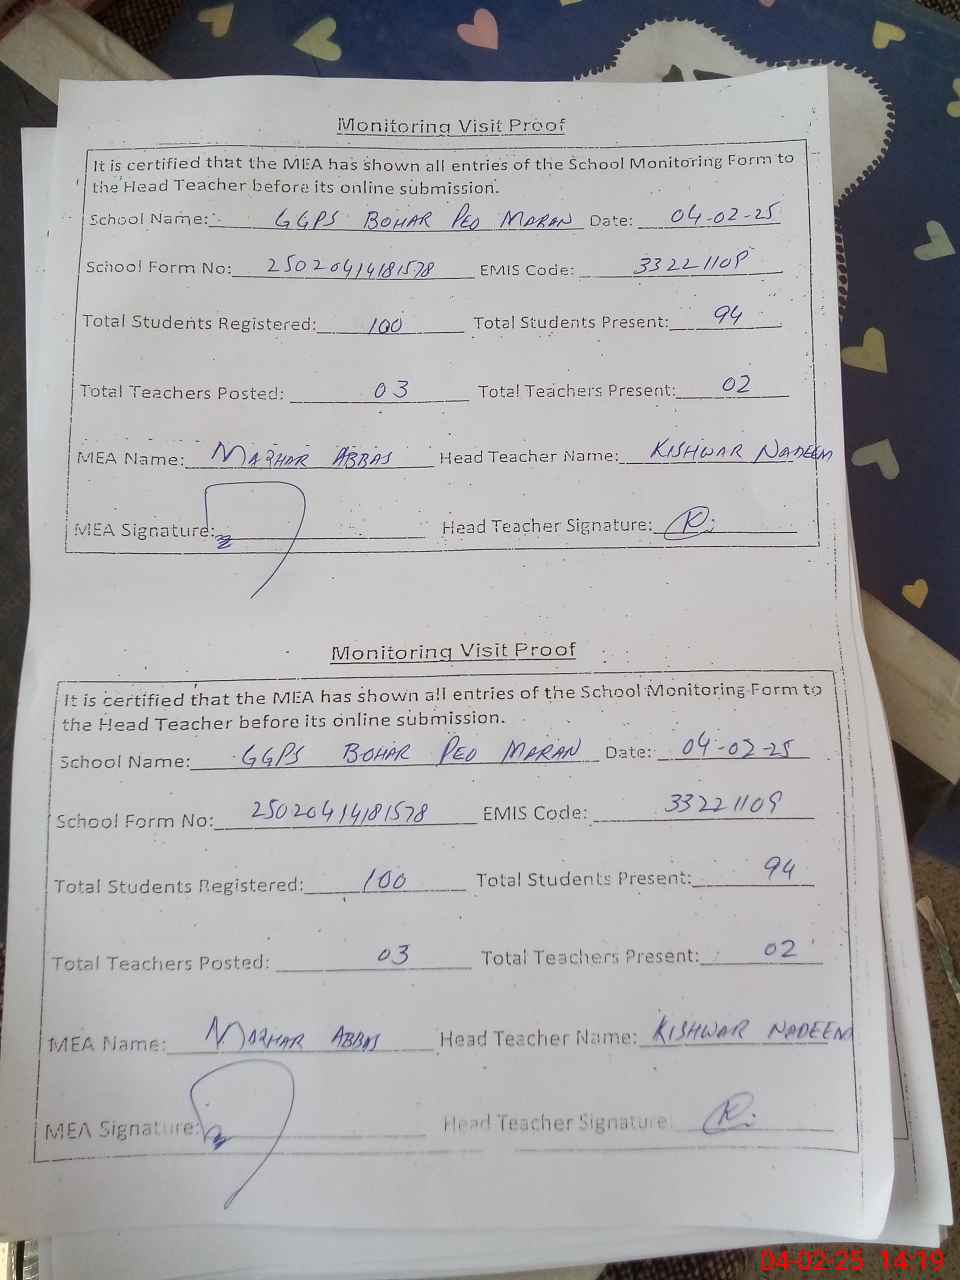 Monitoring Visit Proof
It is certified that the MEA has shown all entries of the School Monitoring Form to
the Head Teacher before its online submission.
School Name: GGPS BOHAR PEO MARAN Date: 04-02-25
School Form No: 25020414181578 EMIS Code: 33221109
Total Students Registered: 100 Total Students Present: 94
Total Teachers Posted: 03 Total Teachers Present: 02
MEA Name: MAZHAR ABBAS Head Teacher Name: KISHWAR NADEEM
MEA Signature: Head Teacher Signature: K
Monitoring Visit Proof
It is certified that the MEA has shown all entries of the School Monitoring Form to
the Head Teacher before its online submission.
School Name: GGPS BOHAR PEO MARAN Date: 04-02-25
School Form No: 25020414181578 EMIS Code: 33221109
Total Students Registered: 100 Total Students Present: 94
Total Teachers Posted: 03 Total Teachers Present: 02
MEA Name: MAZHAR ABBAS Head Teacher Name: KISHWAR NADEEM
MEA Signature: Head Teacher Signature: K
04-02-25 14:19